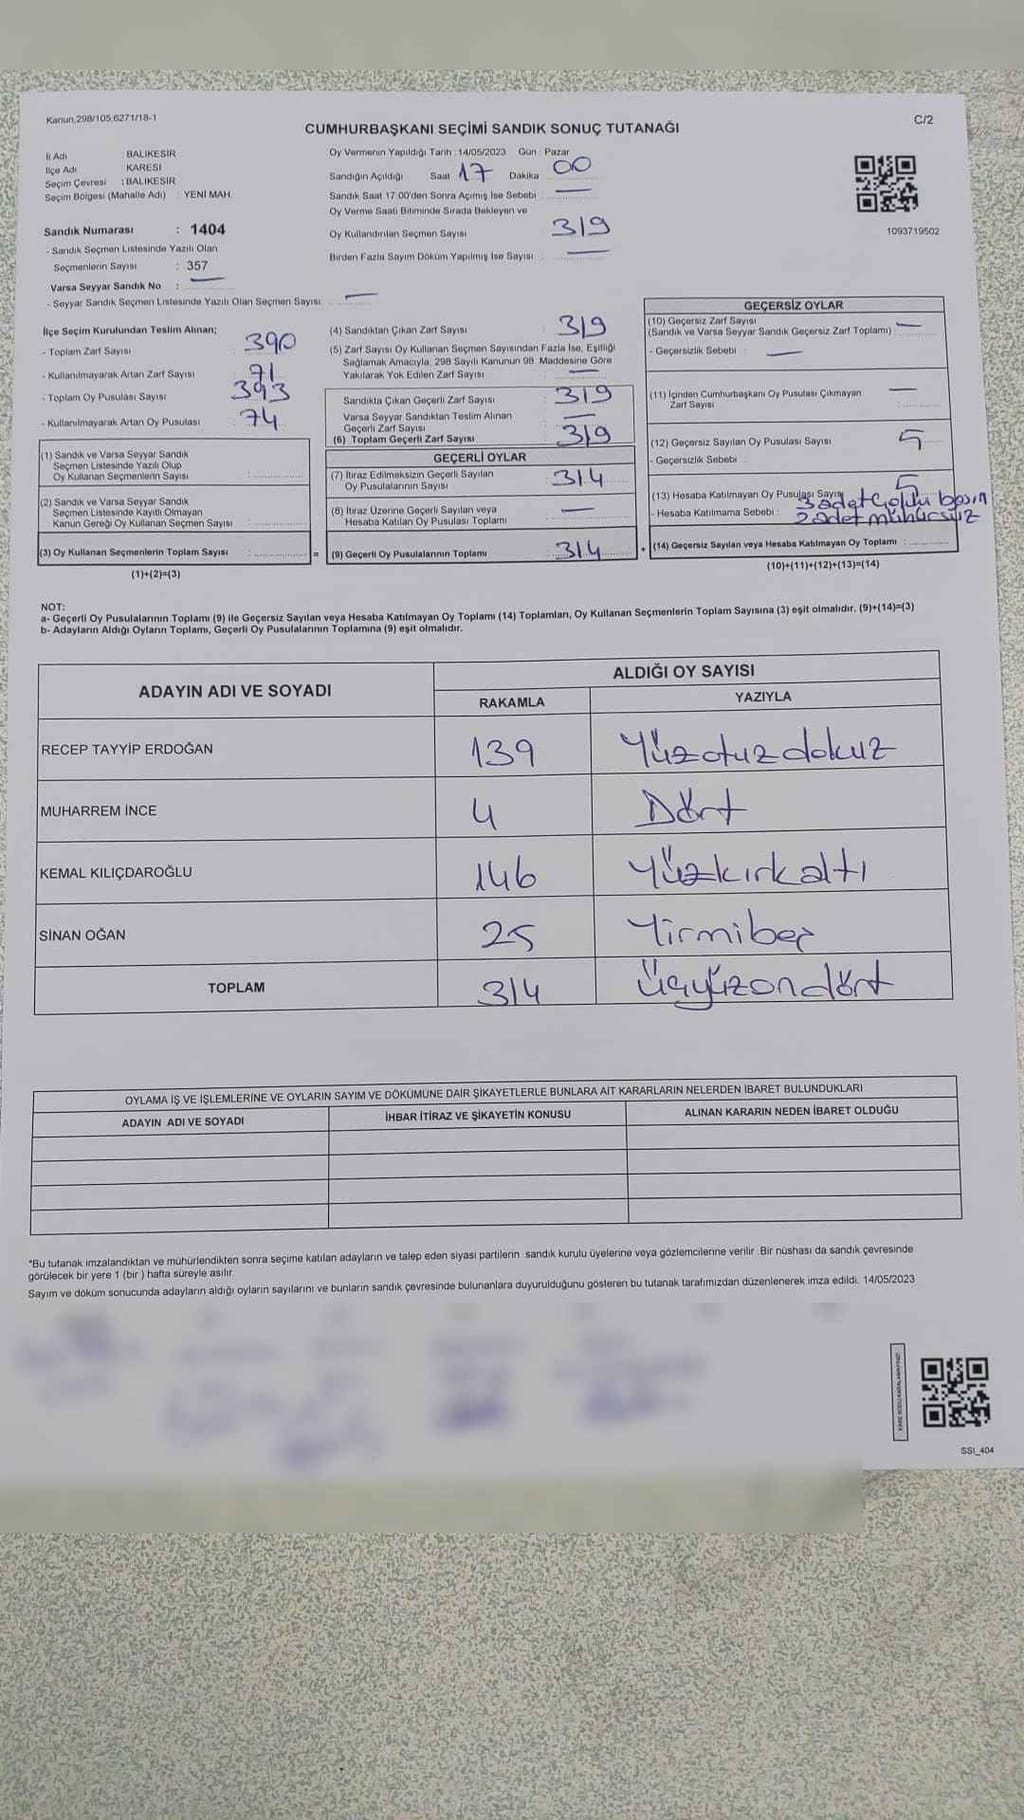 Kanun,298/105;6271/18-1
C/2
CUMHURBAŞKANI SEÇİMİ SANDIK SONUÇ TUTANAĞI
İl Adı : BALIKESİR
İlçe Adı : KARESİ
Seçim Çevresi : BALIKESİR
Seçim Bölgesi (Mahalle Adı) : YENİ MAH.
Sandık Numarası : 1404
- Sandık Seçmen Listesinde Yazılı Olan
Seçmenlerin Sayısı : 357
Varsa Seyyar Sandık No : —
- Seyyar Sandık Seçmen Listesinde Yazılı Olan Seçmen Sayısı —
Oy Vermenin Yapıldığı Tarih :14/05/2023 Gün : Pazar
Sandığın Açıldığı Saat 17 Dakika 00
Sandık Saat 17:00'den Sonra Açılmış İse Sebebi : —
Oy Verme Saati Bitiminde Sırada Bekleyen ve
Oy Kullandırılan Seçmen Sayısı 319
Birden Fazla Sayım Döküm Yapılmış İse Sayısı : —
1093719502
İlçe Seçim Kurulundan Teslim Alınan;
- Toplam Zarf Sayısı : 390
- Kullanılmayarak Artan Zarf Sayısı : 71
- Toplam Oy Pusulası Sayısı : 393
- Kullanılmayarak Artan Oy Pusulası : 74
(1) Sandık ve Varsa Seyyar Sandık
Seçmen Listesinde Yazılı Olup
Oy Kullanan Seçmenlerin Sayısı :
(2) Sandık ve Varsa Seyyar Sandık
Seçmen Listesinde Kayıtlı Olmayan
Kanun Gereği Oy Kullanan Seçmen Sayısı :
(3) Oy Kullanan Seçmenlerin Toplam Sayısı : =
(1)+(2)=(3)
(4) Sandıktan Çıkan Zarf Sayısı : 319
(5) Zarf Sayısı Oy Kullanan Seçmen Sayısından Fazla İse, Eşitliği
Sağlamak Amacıyla, 298 Sayılı Kanunun 98. Maddesine Göre
Yakılarak Yok Edilen Zarf Sayısı : —
Sandıkta Çıkan Geçerli Zarf Sayısı : 319
Varsa Seyyar Sandıktan Teslim Alınan
Geçerli Zarf Sayısı : —
(6) Toplam Geçerli Zarf Sayısı : 319
GEÇERLİ OYLAR
(7) İtiraz Edilmeksizin Geçerli Sayılan
Oy Pusulalarının Sayısı : 314
(8) İtiraz Üzerine Geçerli Sayılan veya
Hesaba Katılan Oy Pusulası Toplamı : —
(9) Geçerli Oy Pusulalarının Toplamı : 314 +
GEÇERSİZ OYLAR
(10) Geçersiz Zarf Sayısı
(Sandık ve Varsa Seyyar Sandık Geçersiz Zarf Toplamı) : —
- Geçersizlik Sebebi : —
(11) İçinden Cumhurbaşkanı Oy Pusulası Çıkmayan
Zarf Sayısı : —
(12) Geçersiz Sayılan Oy Pusulası Sayısı : 5
- Geçersizlik Sebebi :
(13) Hesaba Katılmayan Oy Pusulası Sayısı 5
- Hesaba Katılmama Sebebi : 3 adet basın
2 adet mühürsüz
(14) Geçersiz Sayılan veya Hesaba Katılmayan Oy Toplamı :
(10)+(11)+(12)+(13)=(14)
NOT:
a- Geçerli Oy Pusulalarının Toplamı (9) ile Geçersiz Sayılan veya Hesaba Katılmayan Oy Toplamı (14) Toplamları, Oy Kullanan Seçmenlerin Toplam Sayısına (3) eşit olmalıdır. (9)+(14)=(3)
b- Adayların Aldığı Oyların Toplamı, Geçerli Oy Pusulalarının Toplamına (9) eşit olmalıdır.
ADAYIN ADI VE SOYADI
ALDIĞI OY SAYISI
RAKAMLA YAZIYLA
RECEP TAYYİP ERDOĞAN 139 Yüzotuzdokuz
MUHARREM İNCE 4 Dört
KEMAL KILIÇDAROĞLU 146 Yüzkırkaltı
SİNAN OĞAN 25 Yirmibeş
TOPLAM 314 Üçyüzondört
OYLAMA İŞ VE İŞLEMLERİNE VE OYLARIN SAYIM VE DÖKÜMÜNE DAİR ŞİKAYETLERLE BUNLARA AİT KARARLARIN NELERDEN İBARET BULUNDUKLARI
ADAYIN ADI VE SOYADI İHBAR İTİRAZ VE ŞİKAYETİN KONUSU ALINAN KARARIN NEDEN İBARET OLDUĞU
*Bu tutanak imzalandıktan ve mühürlendikten sonra seçime katılan adayların ve talep eden siyasi partilerin sandık kurulu üyelerine veya gözlemcilerine verilir. Bir nüshası da sandık çevresinde
görülecek bir yere 1 (bir ) hafta süreyle asılır.
Sayım ve döküm sonucunda adayların aldığı oyların sayılarını ve bunların sandık çevresinde bulunanlara duyurulduğunu gösteren bu tutanak tarafımızdan düzenlenerek imza edildi. 14/05/2023
SSI_404